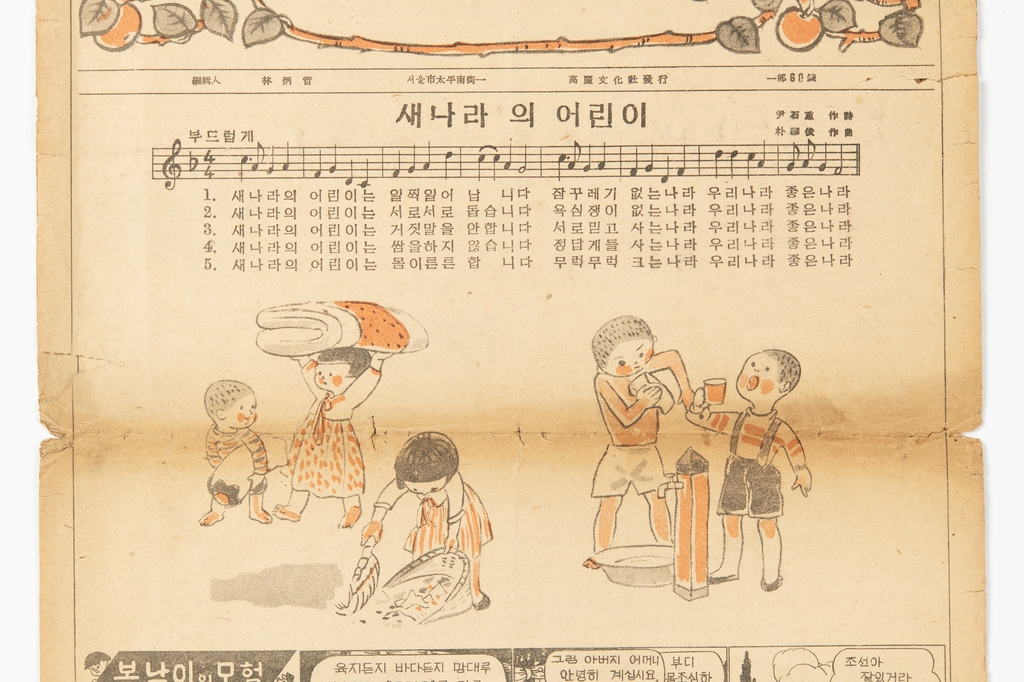 編輯人 林炳哲 서울市太平南街一 高麗文化社發行 一部60錢
새나라 의 어린이
尹石重 作詩
부드럽게
朴 俊 作曲
1. 새나라의 어린이는 일찍일어 납 니다 잠꾸레기 없는나라 우리나라 좋은나라
2. 새나라의 어린이는 서로서로 돕습니다 욕심쟁이 없는나라 우리나라 좋은나라
3. 새나라의 어린이는 거짓말을 안합니다 서로믿고 사는나라 우리나라 좋은나라
4. 새나라의 어린이는 쌈을하지 않습니다 정답게들 사는나라 우리나라 좋은나라
5. 새나라의 어린이는 몸이튼튼 합 니다 무럭무럭 크는나라 우리나라 좋은나라
복남이의모험
육지든지 바다든지 맘대루
그럼 아버지 어머니
안녕히 계십시요
부디
몸조심하
조선아
잘있거라